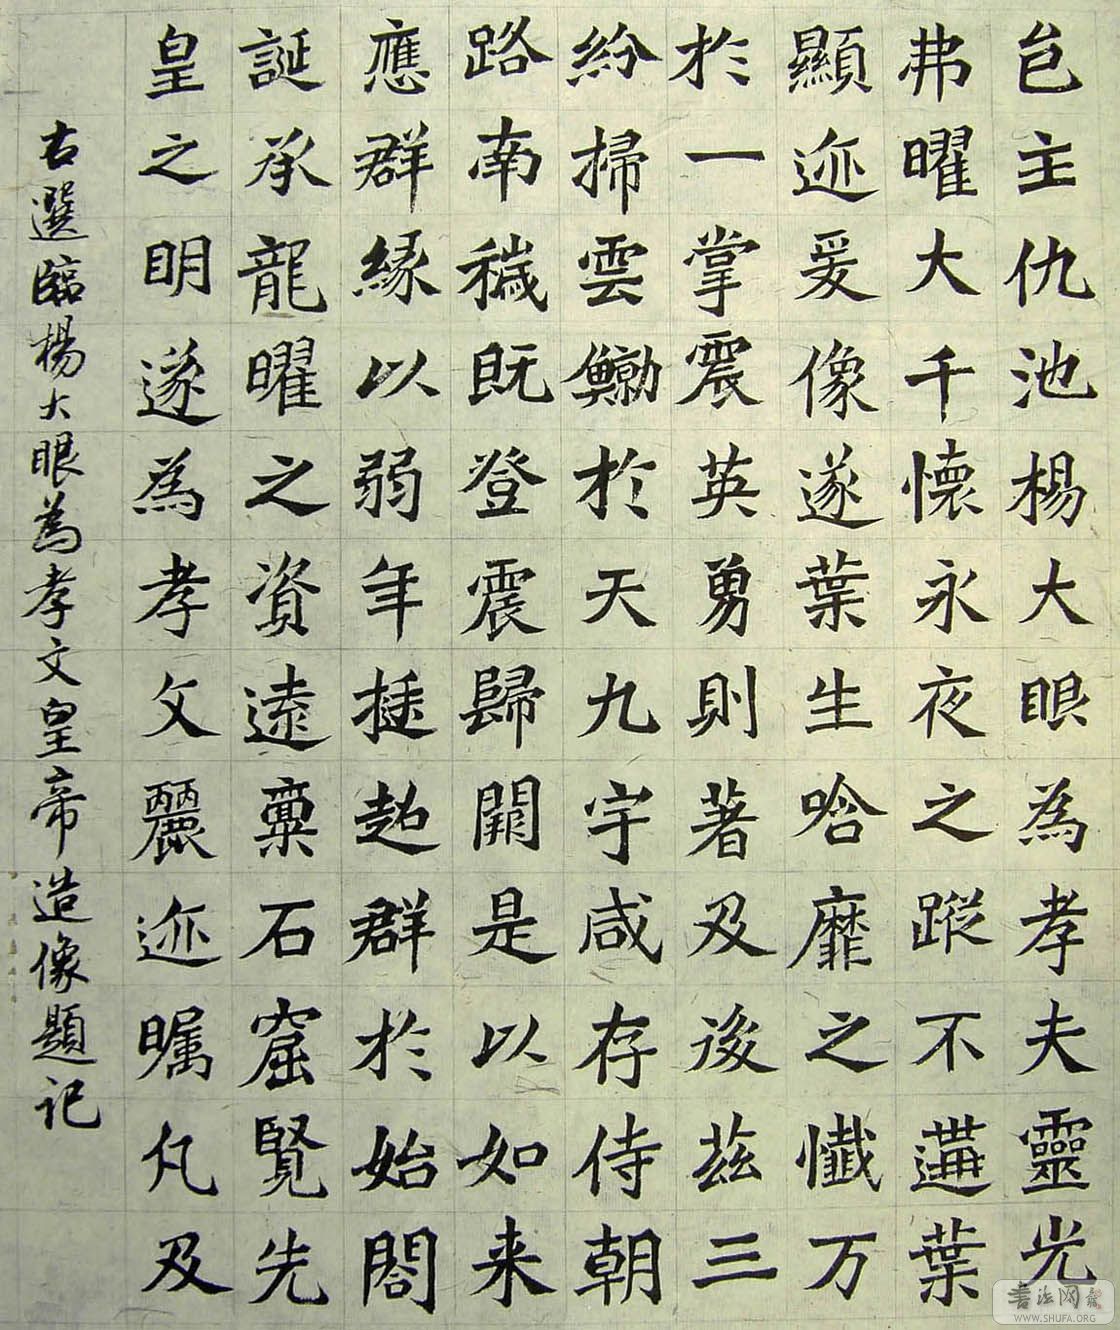 邑主仇池楊大眼為孝夫靈光
弗曜大千懷永夜之蹤不遘葉
顯迹爰像遂葉生唅靡之懺万
於一掌震英勇則著及後茲三
紛掃雲鯨於天九宇咸存侍朝
路南穢既登震歸闢是以如来
應群緣以弱年挺超群於始閣
誕承龍曜之資遠稟石窟覽先
皇之明遂為孝文麗迹矚凡及
古選臨楊大眼為孝文皇帝造像題記
书法网
WWW.SHUFA.ORG